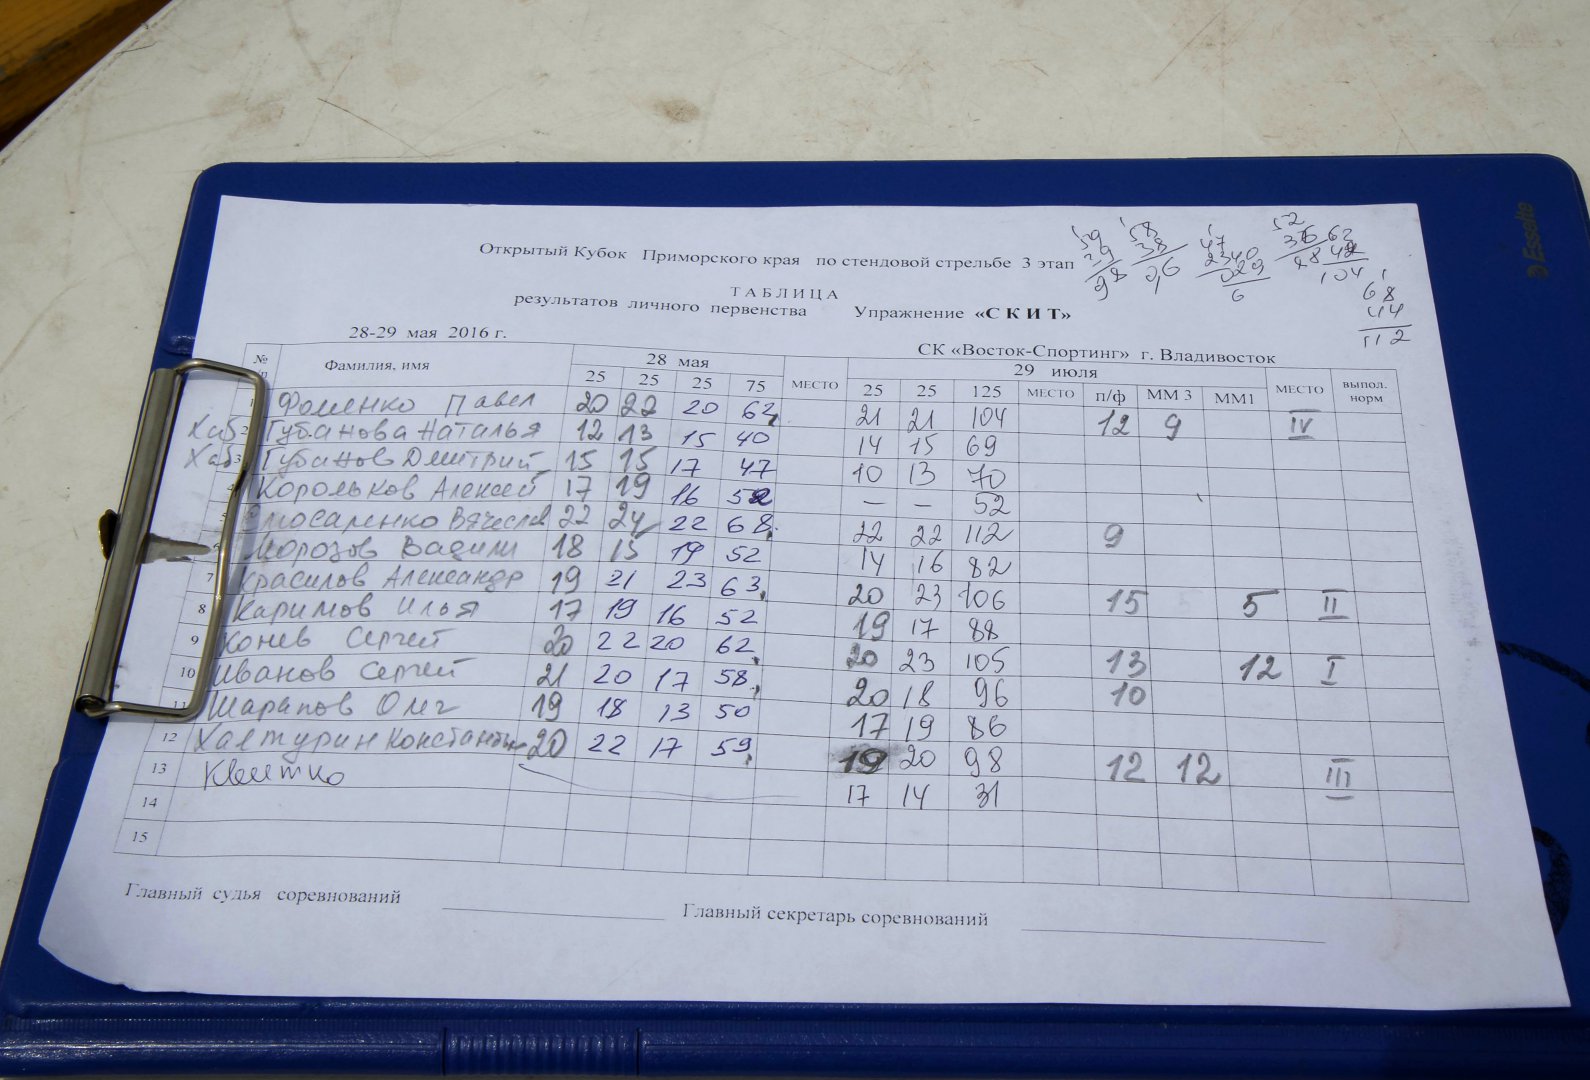 Esselte
Открытый Кубок Приморского края по стендовой стрельбе 3 этап
ТАБЛИЦА
результатов личного первенства Упражнение «СКИТ»
28-29 мая 2016 г. СК «Восток-Спортинг» г. Владивосток
№ Фамилия, имя 28 мая МЕСТО 29 июля МЕСТО выпол. норм
25 25 25 75 25 25 125 МЕСТО п/ф ММ 3 ММ1
1 Фоменко Павел 20 22 20 62 21 21 104 12 9 IV
Хаб 2 Губанова Наталья 12 13 15 40 14 15 69
Хаб 3 Губанов Дмитрий 15 15 17 47 10 13 70
4 Корольков Алексей 17 19 16 52 – – 52
Вячеслав 22 24 22 68 22 22 112 9
Морозов Вадим 18 15 19 52 14 16 82
7 Красилов Александр 19 21 23 63 20 23 106 15 5 II
8 Каримов Илья 17 19 16 52 19 17 88
9 Конев Сергей 20 22 20 62 20 23 105 13 12 I
10 Иванов Сергей 21 20 17 58 20 18 96 10
11 Шарапов Олег 19 18 13 50 17 19 86
12 Халтурин Константин 20 22 17 59 19 20 98 12 12 III
13 Квитко 17 14 31
14
15
Главный судья соревнований Главный секретарь соревнований